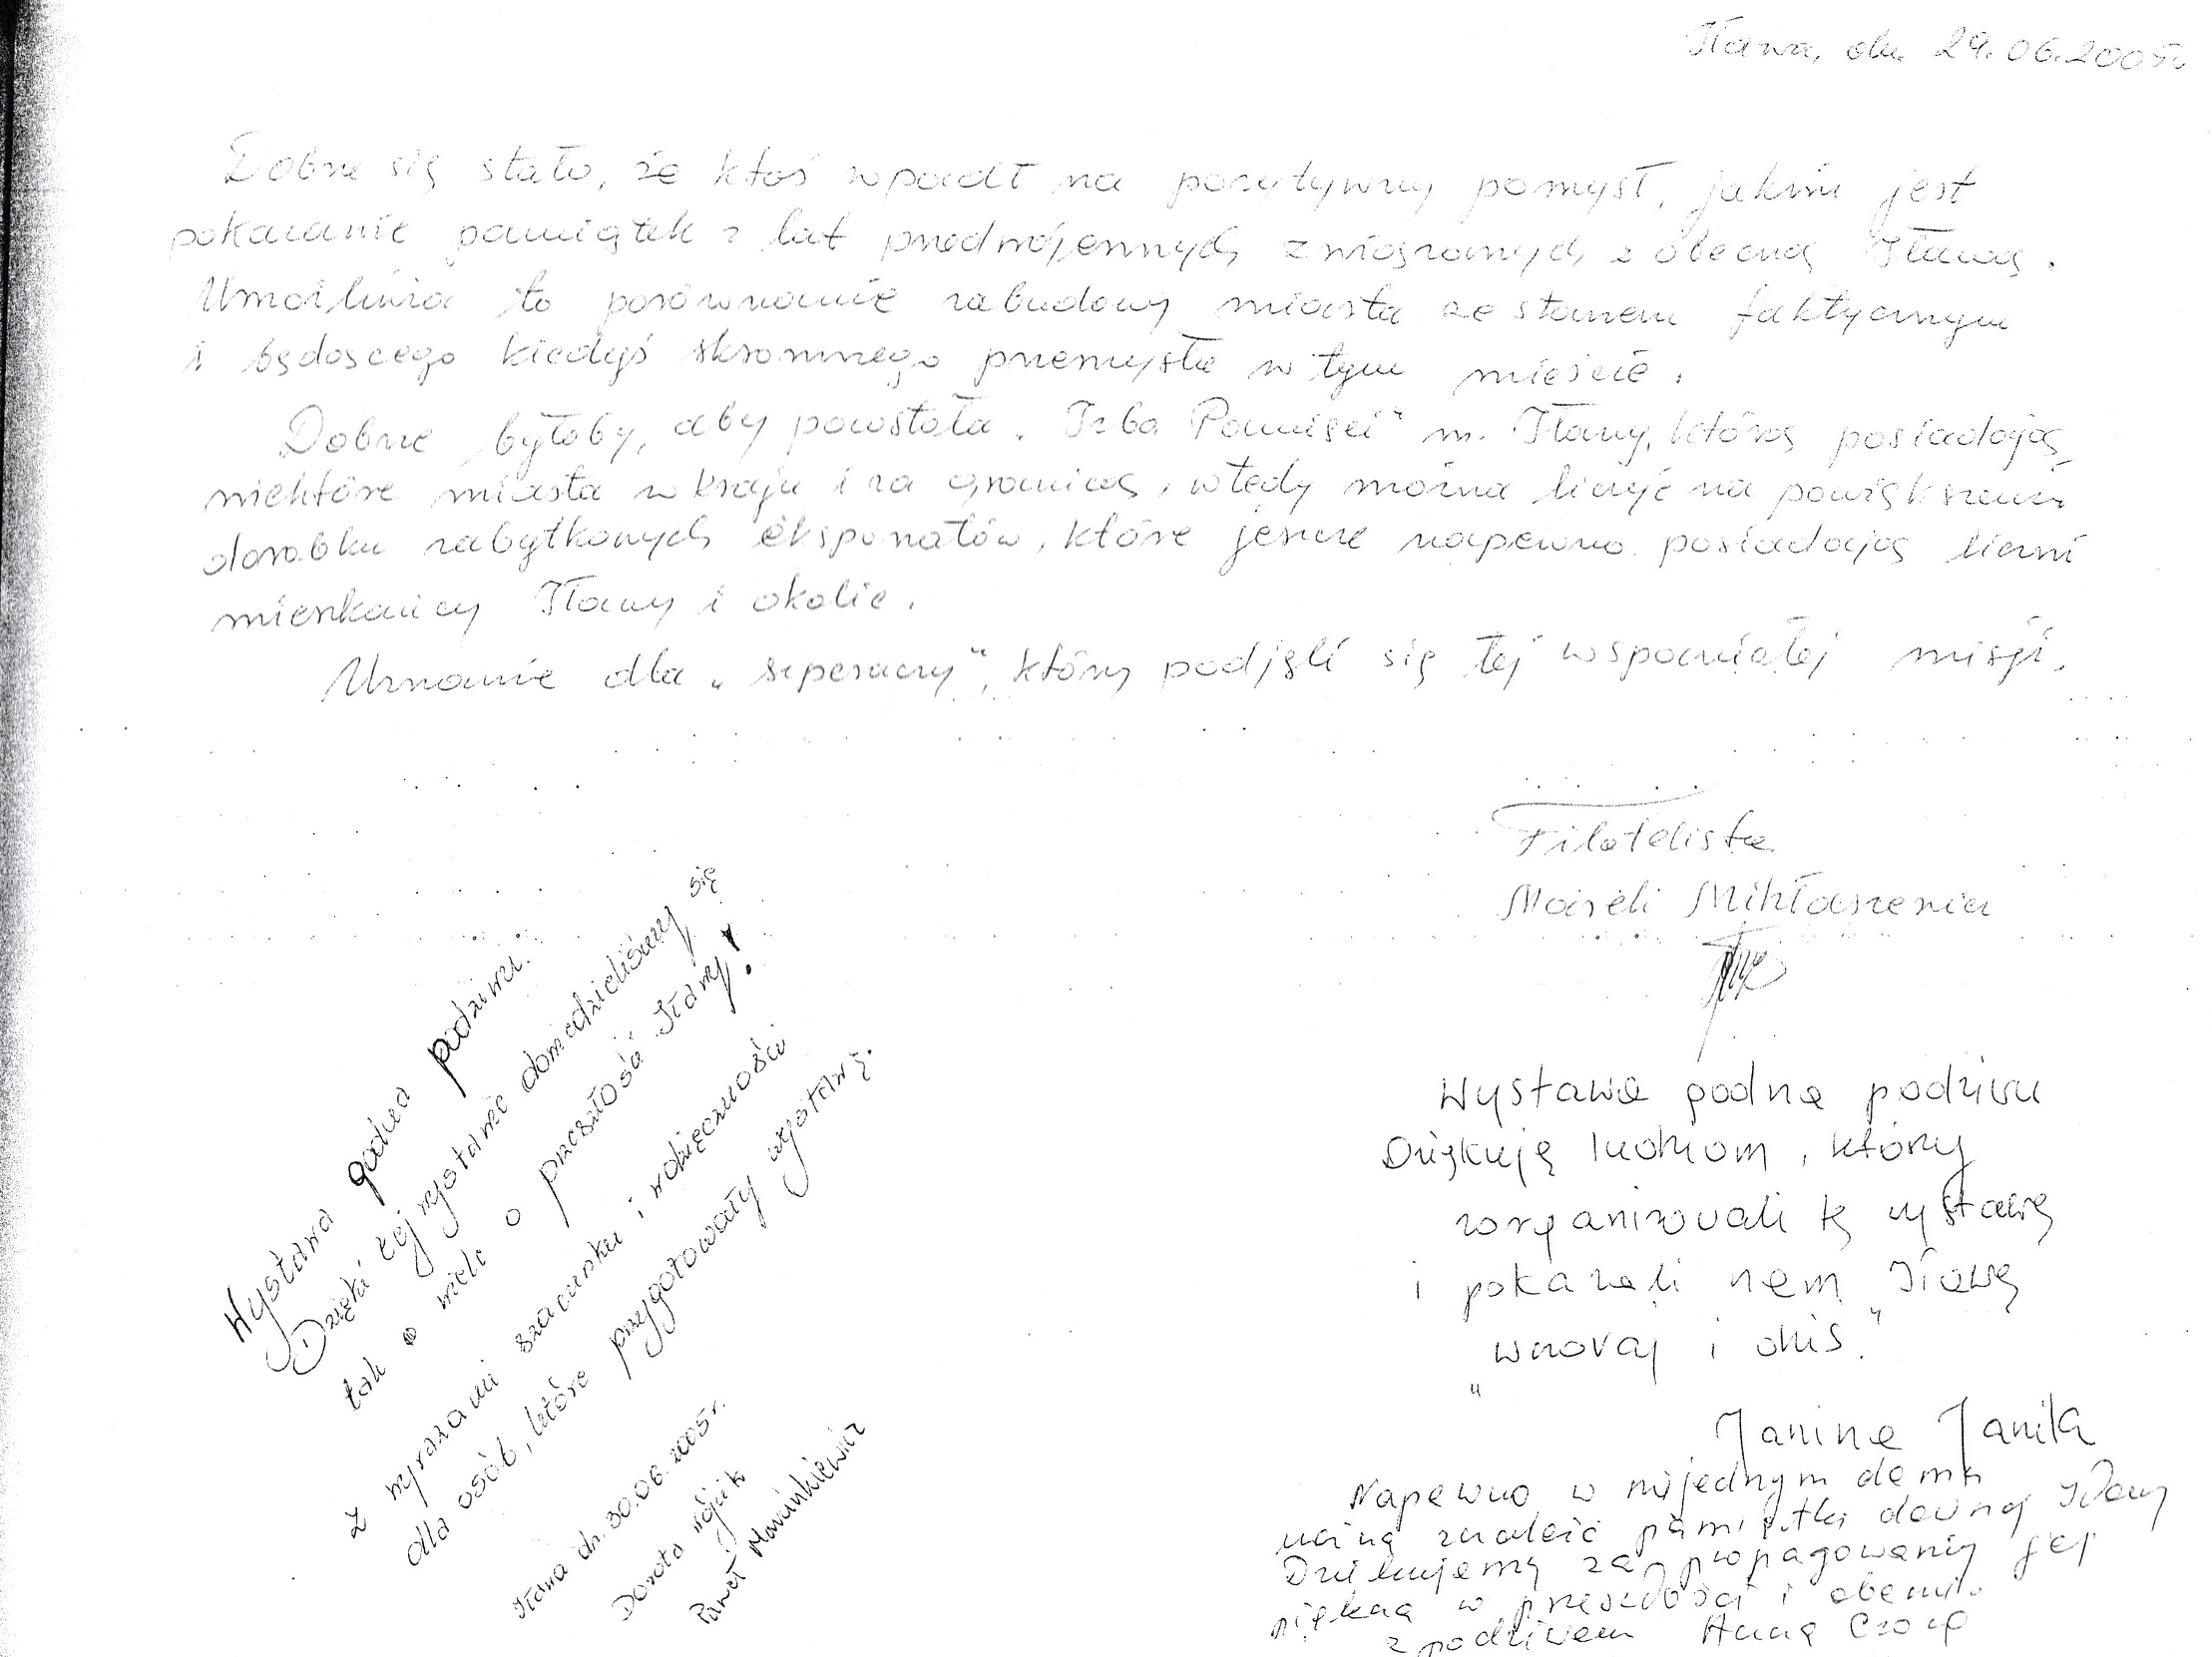 Iława, dn. 29.06.2005r
Dobrze się stało, że ktoś wpadł na pozytywny pomysł, jakim jest
pokazanie pamiątek z lat przedwojennych związanych z obecną Iławą.
Umożliwia to porównanie zabudowy miasta ze stanem faktycznym
i będącego kiedyś skromnego przemysłu w tym mieście.
Dobrze byłoby, aby powstała „Izba Pamięci" m. Iławy, którą posiadają
niektóre miasta w kraju i za granicą, wtedy można liczyć na powiększenie
dorobku zabytkowych eksponatów, które jeszcze napewno posiadają liczni
mieszkańcy Iławy i okolic.
Uznanie dla „szperaczy", którzy podjęli się tej wspaniałej misji.
Filatelista
Wystawa godna podziwu.
Dzięki tej wystawie dowiedzieliśmy się
tak wiele o przeszłości Iławy!
Z wyrazami szacunku i wdzięczności
dla osób, które przygotowały wystawę.
Iława dn. 30.06.2005r.
Dorota Wójcik
Paweł Marcinkiewicz
Wystawa godna podziwu
Dziękuję ludziom, którzy
zorganizowali tę wystawę
i pokazali nam Iławę
„wczoraj i dziś."
Janina Janik
Napewno w niejednym domu
można znaleźć pamiątki dawnej Iławy
Dziękujemy za propagowanie jej
piękna w przeszłości i obecnie
z podziwem Anna